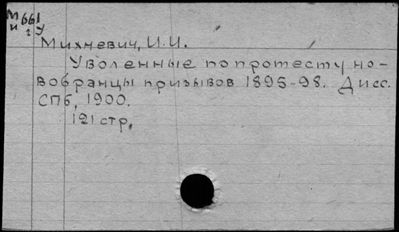 М 661
и г У
Михневич, И.И.
Уволенные по протесту но-
вобранцы призывов 1895-98. Дисс.
СПб, 1900.
121 стр.